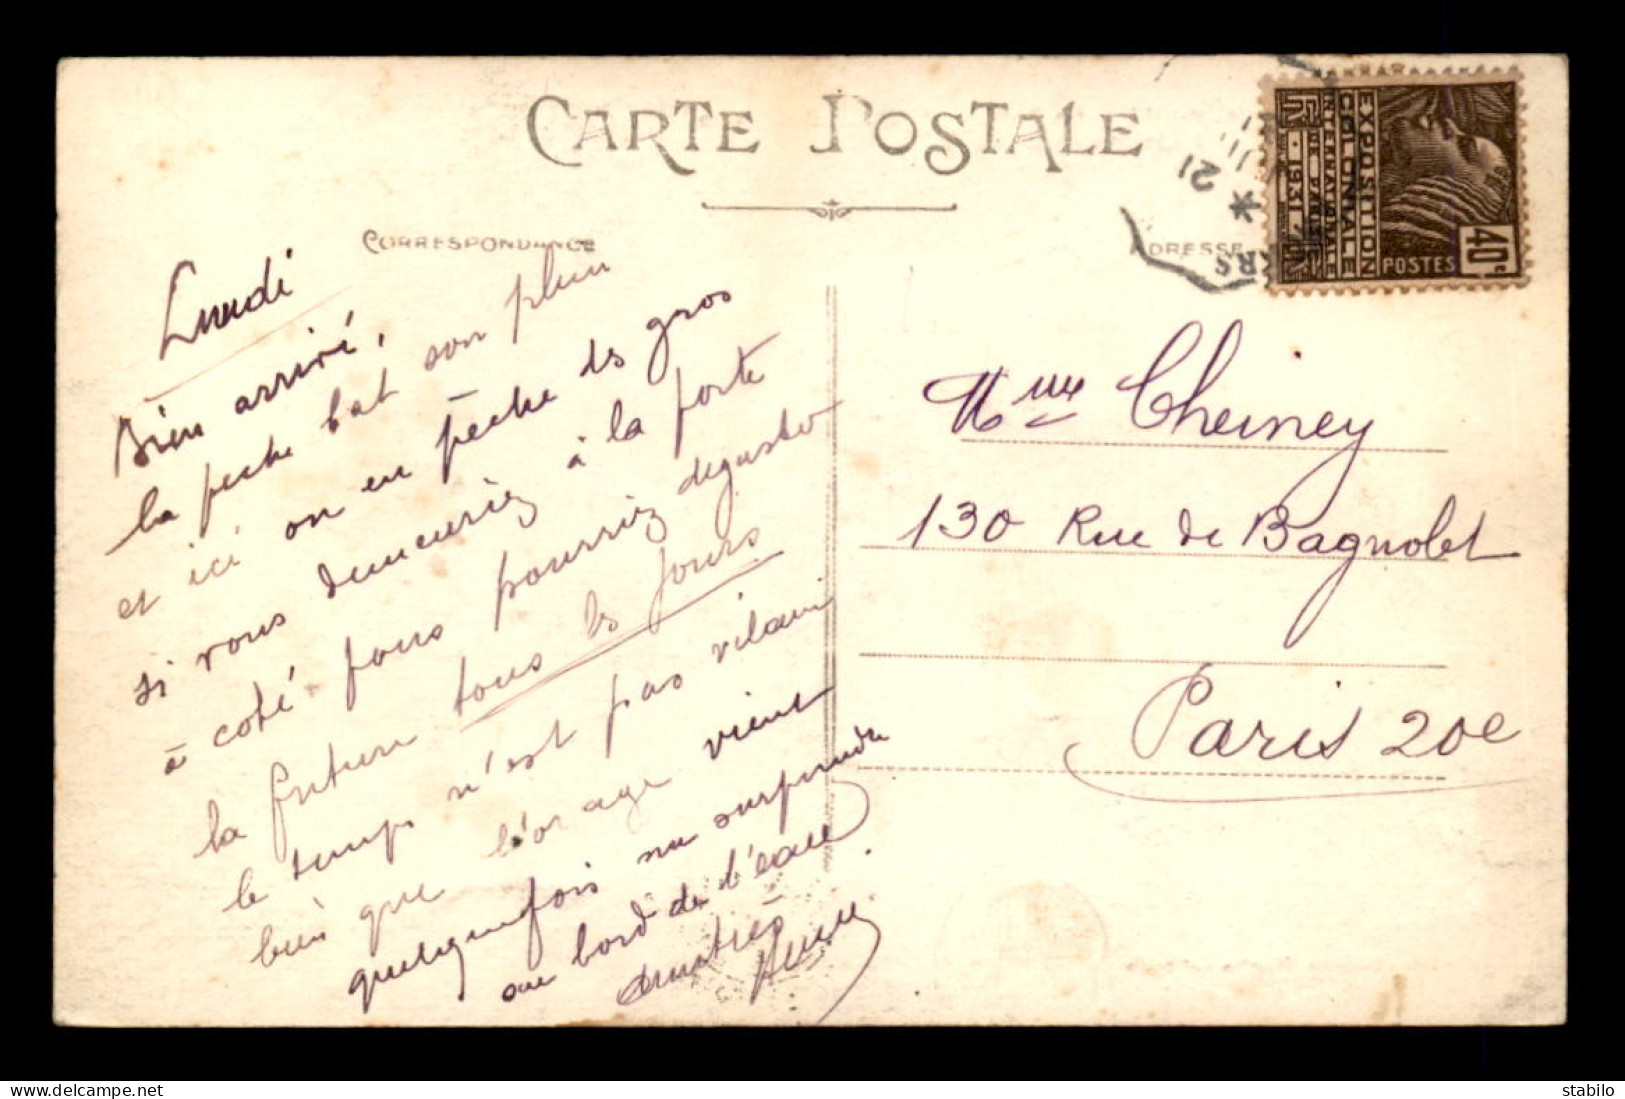 CARTE POSTALE
CORRESPONDANCE
ADRESSE
21
EXPOSITION
COLONIALE
INTERNATIONALE
DE PARIS
1931
POSTES
40c
Lundi
Bien arrivé,
la peche bat son plein
et ici on en pèche ds gros
si vous demeuriez à la porte
à coté vous pourriez deguster
la friture tous ls jours
le temps n'est pas vilain
bien que l'orage vient
quelquefois nu surprendre
au bord de l'eau
Amitiés
Mme Cheiney
130 Rue de Bagnolet
Paris 20e
stabilo